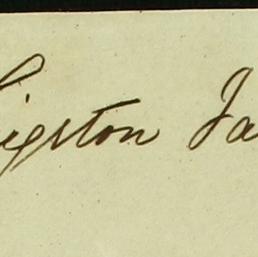 igston Ja